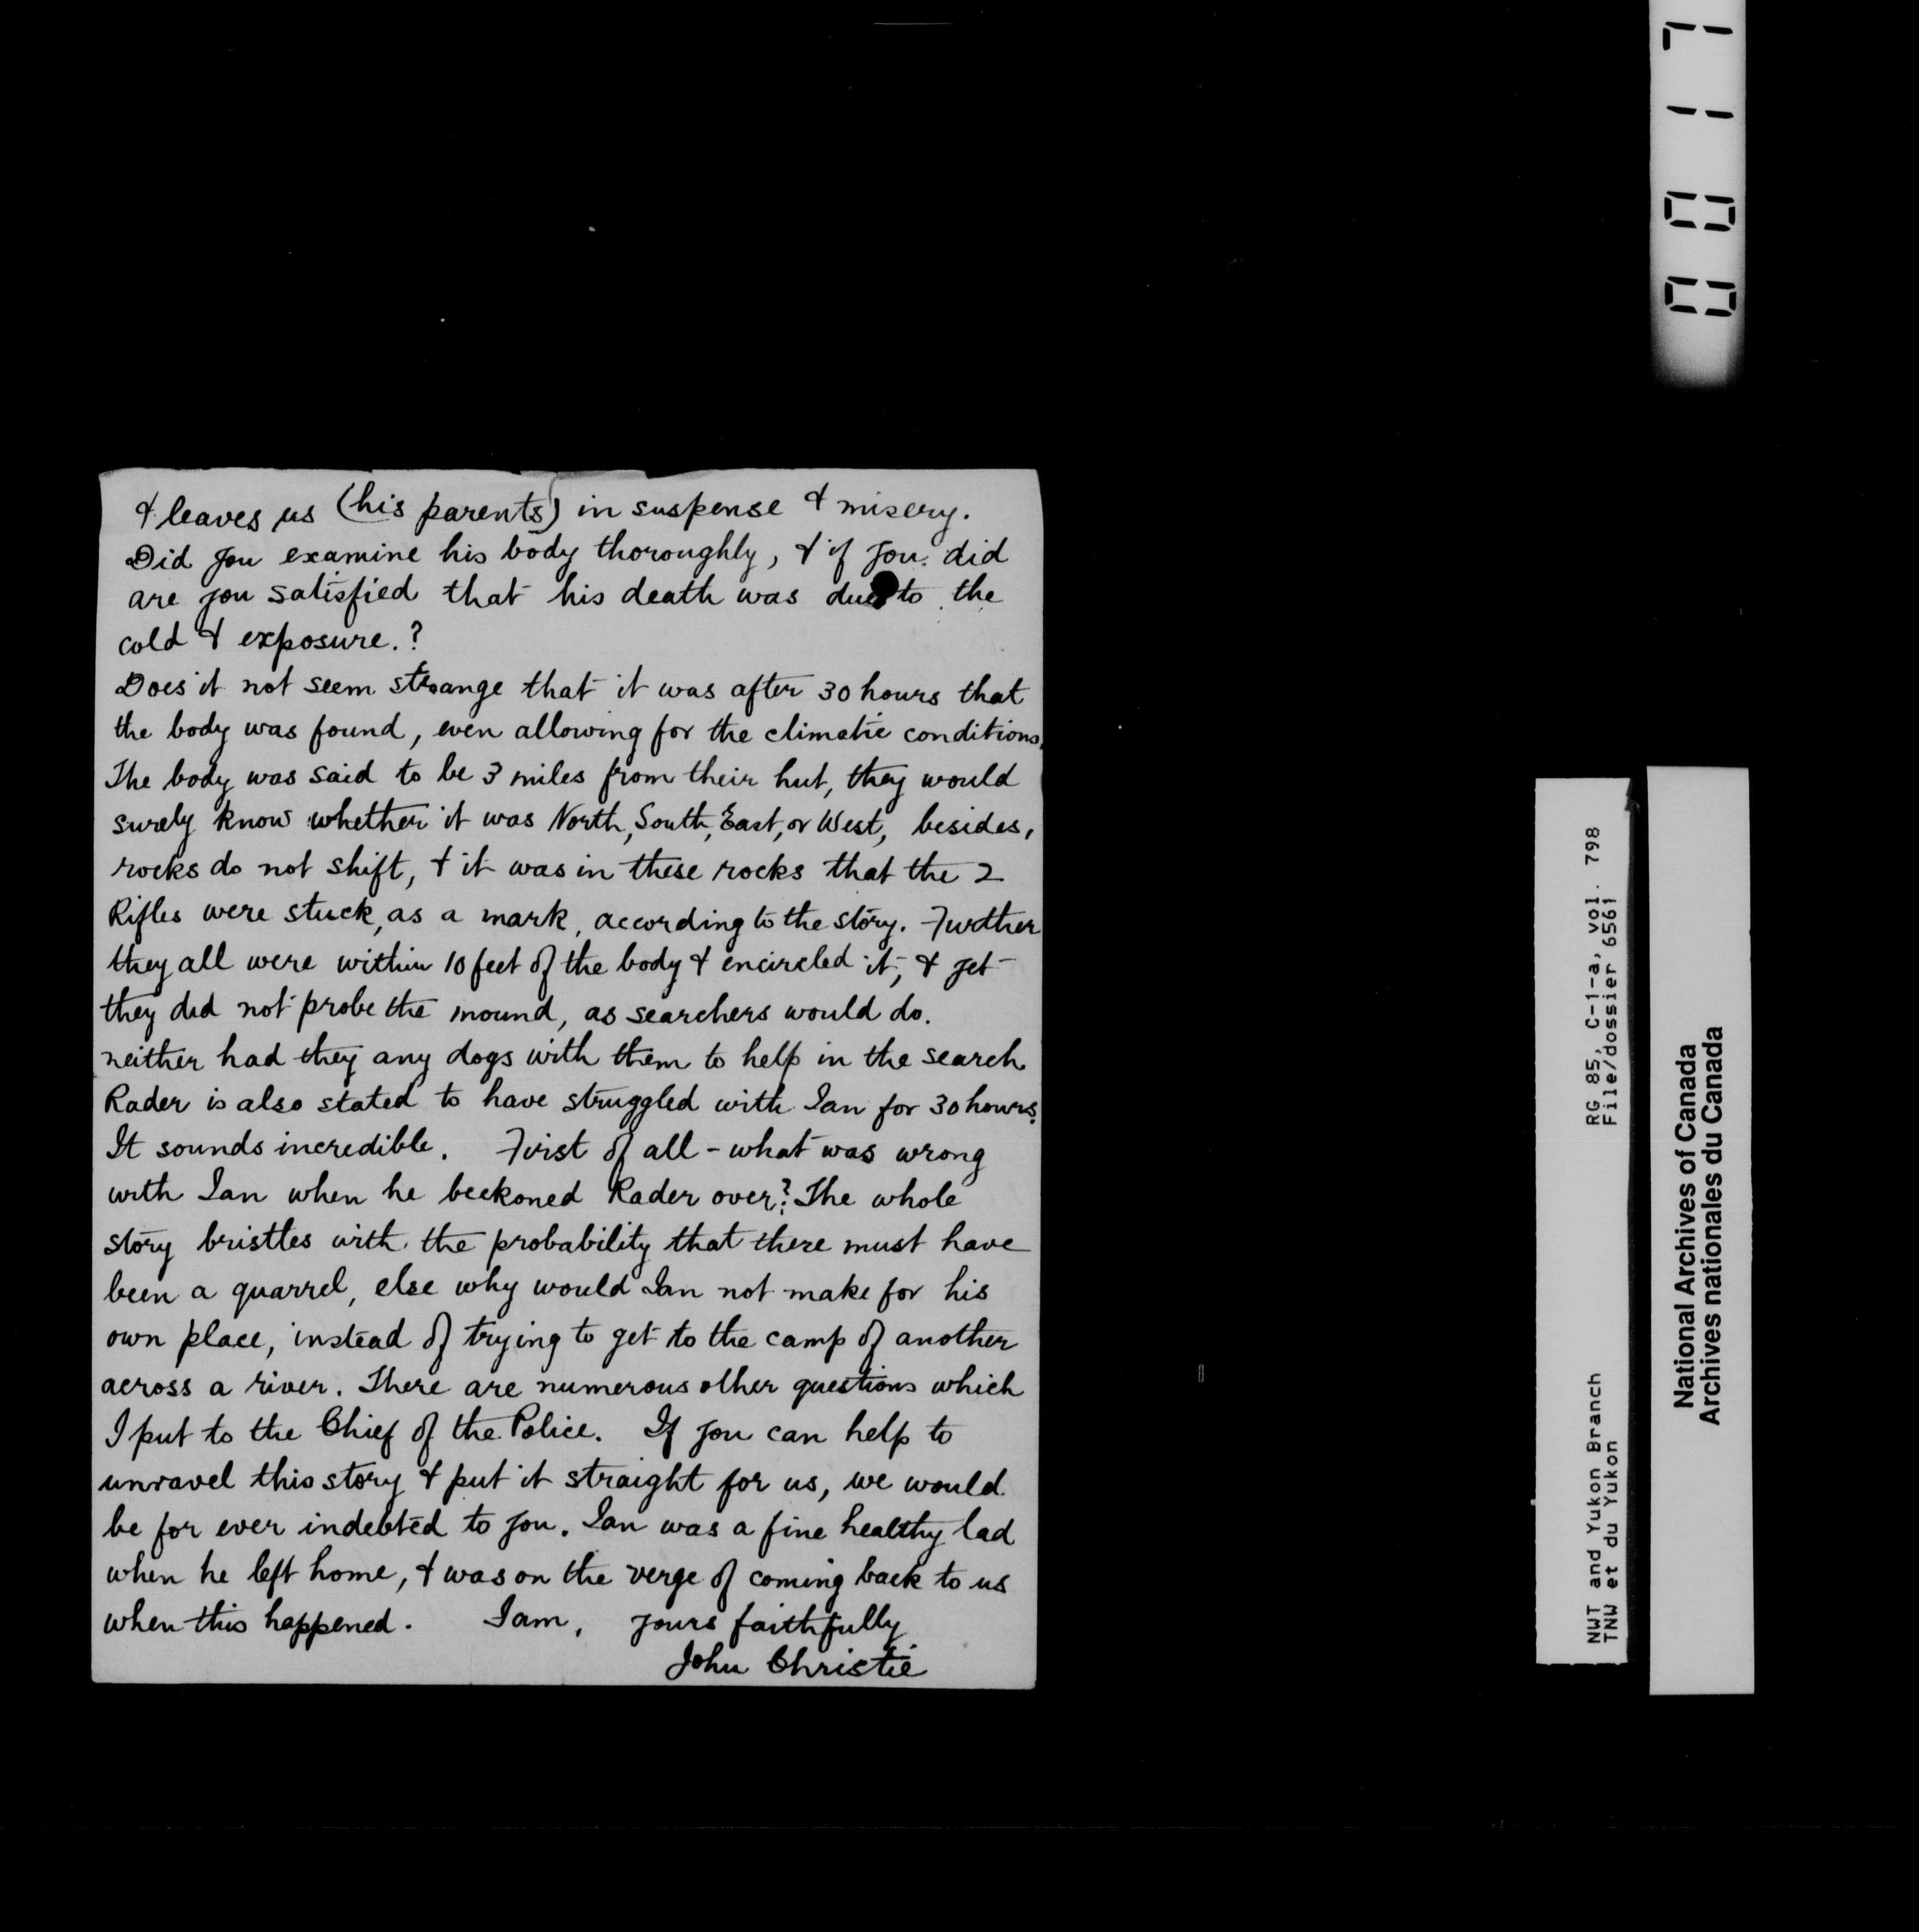 & leaves us (his parents) in suspense & misery.
Did you examine his body thoroughly, & if you did
are you satisfied that his death was due to the
cold & exposure.?
Does it not seem strange that it was after 30 hours that
the body was found, even allowing for the climatic conditions.
The body was said to be 3 miles from their hut, they would
surely know whether it was North, South, East, or West, besides,
rocks do not shift, & it was in these rocks that the 2
Rifles were stuck, as a mark, according to the story. Further
they all were within 10 feet of the body & encircled it, & yet
they did not probe the mound, as searchers would do.
neither had they any dogs with them to help in the search.
Rader is also stated to have struggled with Ian for 30 hours.
It sounds incredible. First of all - what was wrong
with Ian when he beckoned Rader over? The whole
story bristles with the probability that there must have
been a quarrel, else why would Ian not make for his
own place, instead of trying to get to the camp of another
across a river. There are numerous other questions which
I put to the Chief of the Police. If you can help to
unravel this story & put it straight for us, we would
be for ever indebted to you. Ian was a fine healthy lad
when he left home, & was on the verge of coming back to us
when this happened. I am, yours faithfully
John Christie
RG 85, C-1-a, vol. 798
File/dossier 6561
NWT and Yukon Branch
TNW et du Yukon
National Archives of Canada
Archives nationales du Canada
0017